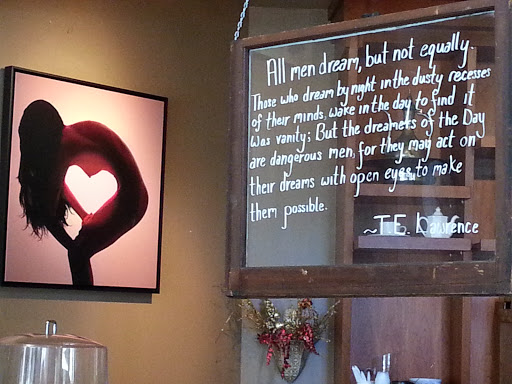 All men dream, but not equally.
Those who dream by night in the dusty recesses
of their minds, wake in the day to find it
was vanity; But the dreamers of the Day
are dangerous men, for they may act on
their dreams with open eyes, to make
them possible.
~T.E. Lawrence